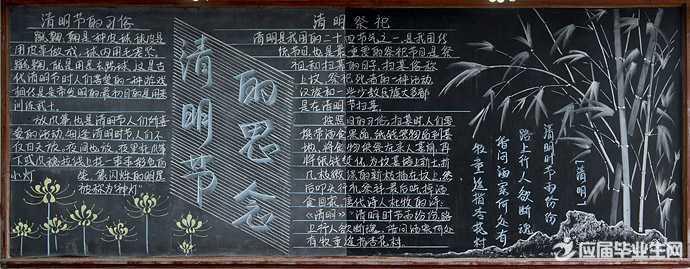 清明节的习俗
蹴鞠，鞠是一种皮球，球皮是
用皮革做成，球内用毛塞紧。
蹴鞠，就是用足去踢球。这是古
代清明节时人们喜爱的一种游戏
相传是黄帝发明的，最初目的是用来
训练武士。
放风筝，也是清明节人们所喜
爱的活动。每逢清明时节，人们不
仅白天放，夜间也放。夜里在风筝
下或风稳拉线上挂一串串彩色的
小灯
象闪烁的明星
被称为“神灯”
清明节
的思念
清明祭祀
清明是我国的二十四节气之一，是我国传
统节日，也是最重要的祭祀节日，是祭
祖和扫墓的日子。扫墓俗称
上坟，祭祀死者的一种活动。
汉族和一些少数民族大多都
是在清明节扫墓。
按照旧的习俗，扫墓时，人们要
携带酒食果品、纸钱等物品到墓
地，将食物供祭在亲人墓前，再
将纸钱焚化，为坟墓培上新土，折
几枝嫩绿的新枝插在坟上，然
后叩头行礼祭拜，最后吃掉酒
食回家。唐代诗人杜牧的诗
《清明》：“清明时节雨纷纷，路
上行人欲断魂。借问酒家何处
有，牧童遥指杏花村。
【清明】
清明时节雨纷纷
路上行人欲断魂
借问酒家何处有
牧童遥指杏花村
应届毕业生网